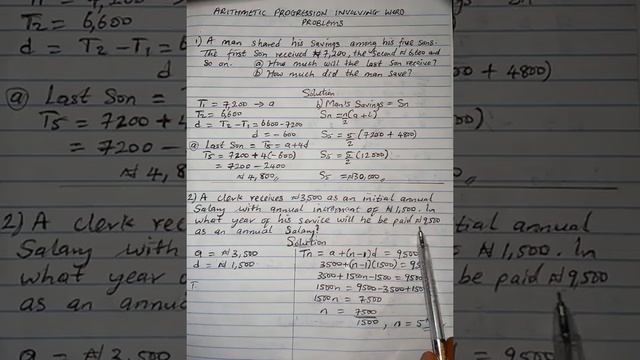 ARITHMETIC PROGRESSION INVOLVING WORD
PROBLEMS
1) A man shared his Savings among his five Sons.
The first Son received ₦7,200, the Second ₦6600 and
So on. (a) How much will the last Son receive?
(b) How much did the man save?
Solution
T1 = 7,200 → a
T2 = 6,600
d = T2 - T1 = 6600 - 7200
d = - 600
(a) Last Son = T5 = a + 4d
T5 = 7200 + 4(-600)
= 7200 - 2400
= ₦ 4,800
b) Man's Savings = Sn
Sn = n/2 (a + L)
S5 = 5/2 (7200 + 4800)
S5 = 5/2 (12000)
S5 = ₦30,000
2) A clerk receives ₦3,500 as an initial annual
Salary with annual increment of ₦1,500. In
what year of his service will he be paid ₦9,500
as an annual Salary?
Solution
a = ₦ 3,500
d = ₦ 1,500
T
Tn = a + (n-1)d = 9500
3500 + (n-1)(1500) = 9
3500 + 1500n - 1500 = 9500
1500n = 9500 - 3500 + 150
1500n = 7500
n = 7500/1500 , n = 5
T2 = 6,600
d = T2 - T1 =
(a) Last Son =
T5 = 7200
= 7200 -
= ₦ 4,8
00 + 4800)
2) A clerk rece
Salary with
what year o
as an annua
a = ₦ 3,500
itial annual
₦ 1,500. In
be paid ₦9,500